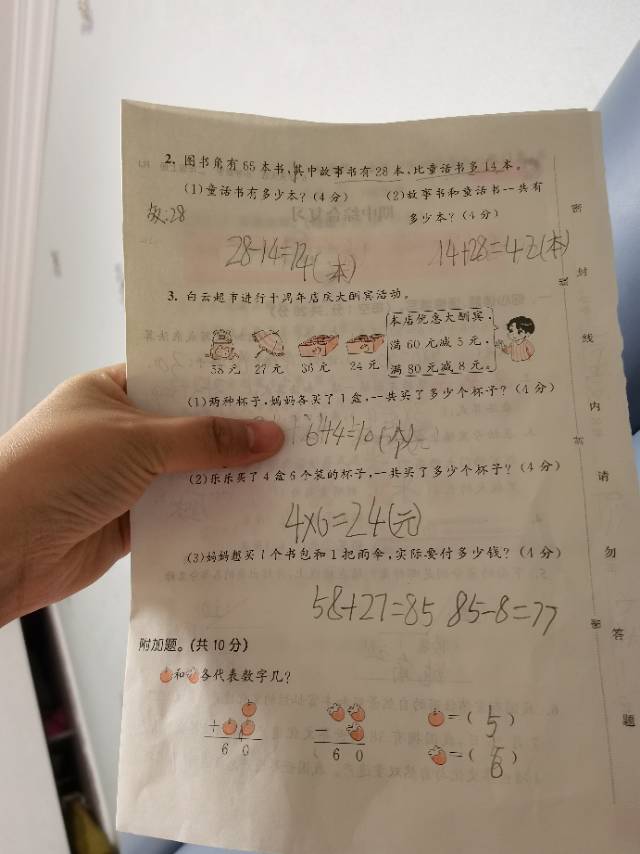 2. 图书角有65本书,其中故事书有28本,比童话书多14本。
(1)童话书有多少本?(4分) (2)故事书和童话书一共有
多少本?(4分)
28-14=14(本) 14+28=42(本)
3. 白云超市进行十周年店庆大酬宾活动。
本店优惠大酬宾.
满60元减5元.
满80元减8元.
58元 27元 36元 24元
(1)两种杯子,妈妈各买了1盒,一共买了多少个杯子?(4分)
6+4=10(个)
(2)乐乐买了4盒6个装的杯子,一共买了多少个杯子?(4分)
4×6=24(元)
(3)妈妈想买1个书包和1把雨伞,实际要付多少钱?(4分)
58+27=85 85-8=77
附加题。(共10分)
和 各代表数字几?
+
6 0
-
6 0
=( 5 )
=( 6 )
密
封
线
内
请
勿
答
题